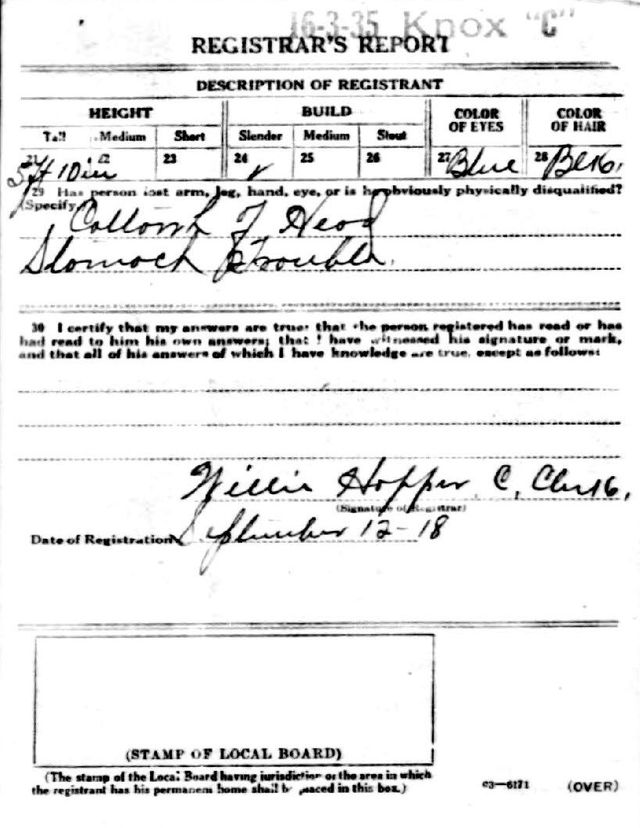 16-3-35 Knox "C"
REGISTRAR'S REPORT
DESCRIPTION OF REGISTRANT
HEIGHT BUILD COLOR OF EYES COLOR OF HAIR
Tall Medium Short Slender Medium Stout
21 22 23 24 ✓ 25 26 27 Blue 28 Blk.
5 ft 10 in
29 Has person lost arm, leg, hand, eye, or is he obviously physically disqualified?
(Specify.) Cattarrh of Head
Stomach Trouble.
30 I certify that my answers are true; that the person registered has read or has
had read to him his own answers; that I have witnessed his signature or mark,
and that all of his answers of which I have knowledge are true, except as follows:
Willie Hopper, C, Clerk,
(Signature of Registrar)
Date of Registration September 12-18
(STAMP OF LOCAL BOARD)
(The stamp of the Local Board having jurisdiction of the area in which
the registrant has his permanent home shall be placed in this box.)
03—6171 (OVER)